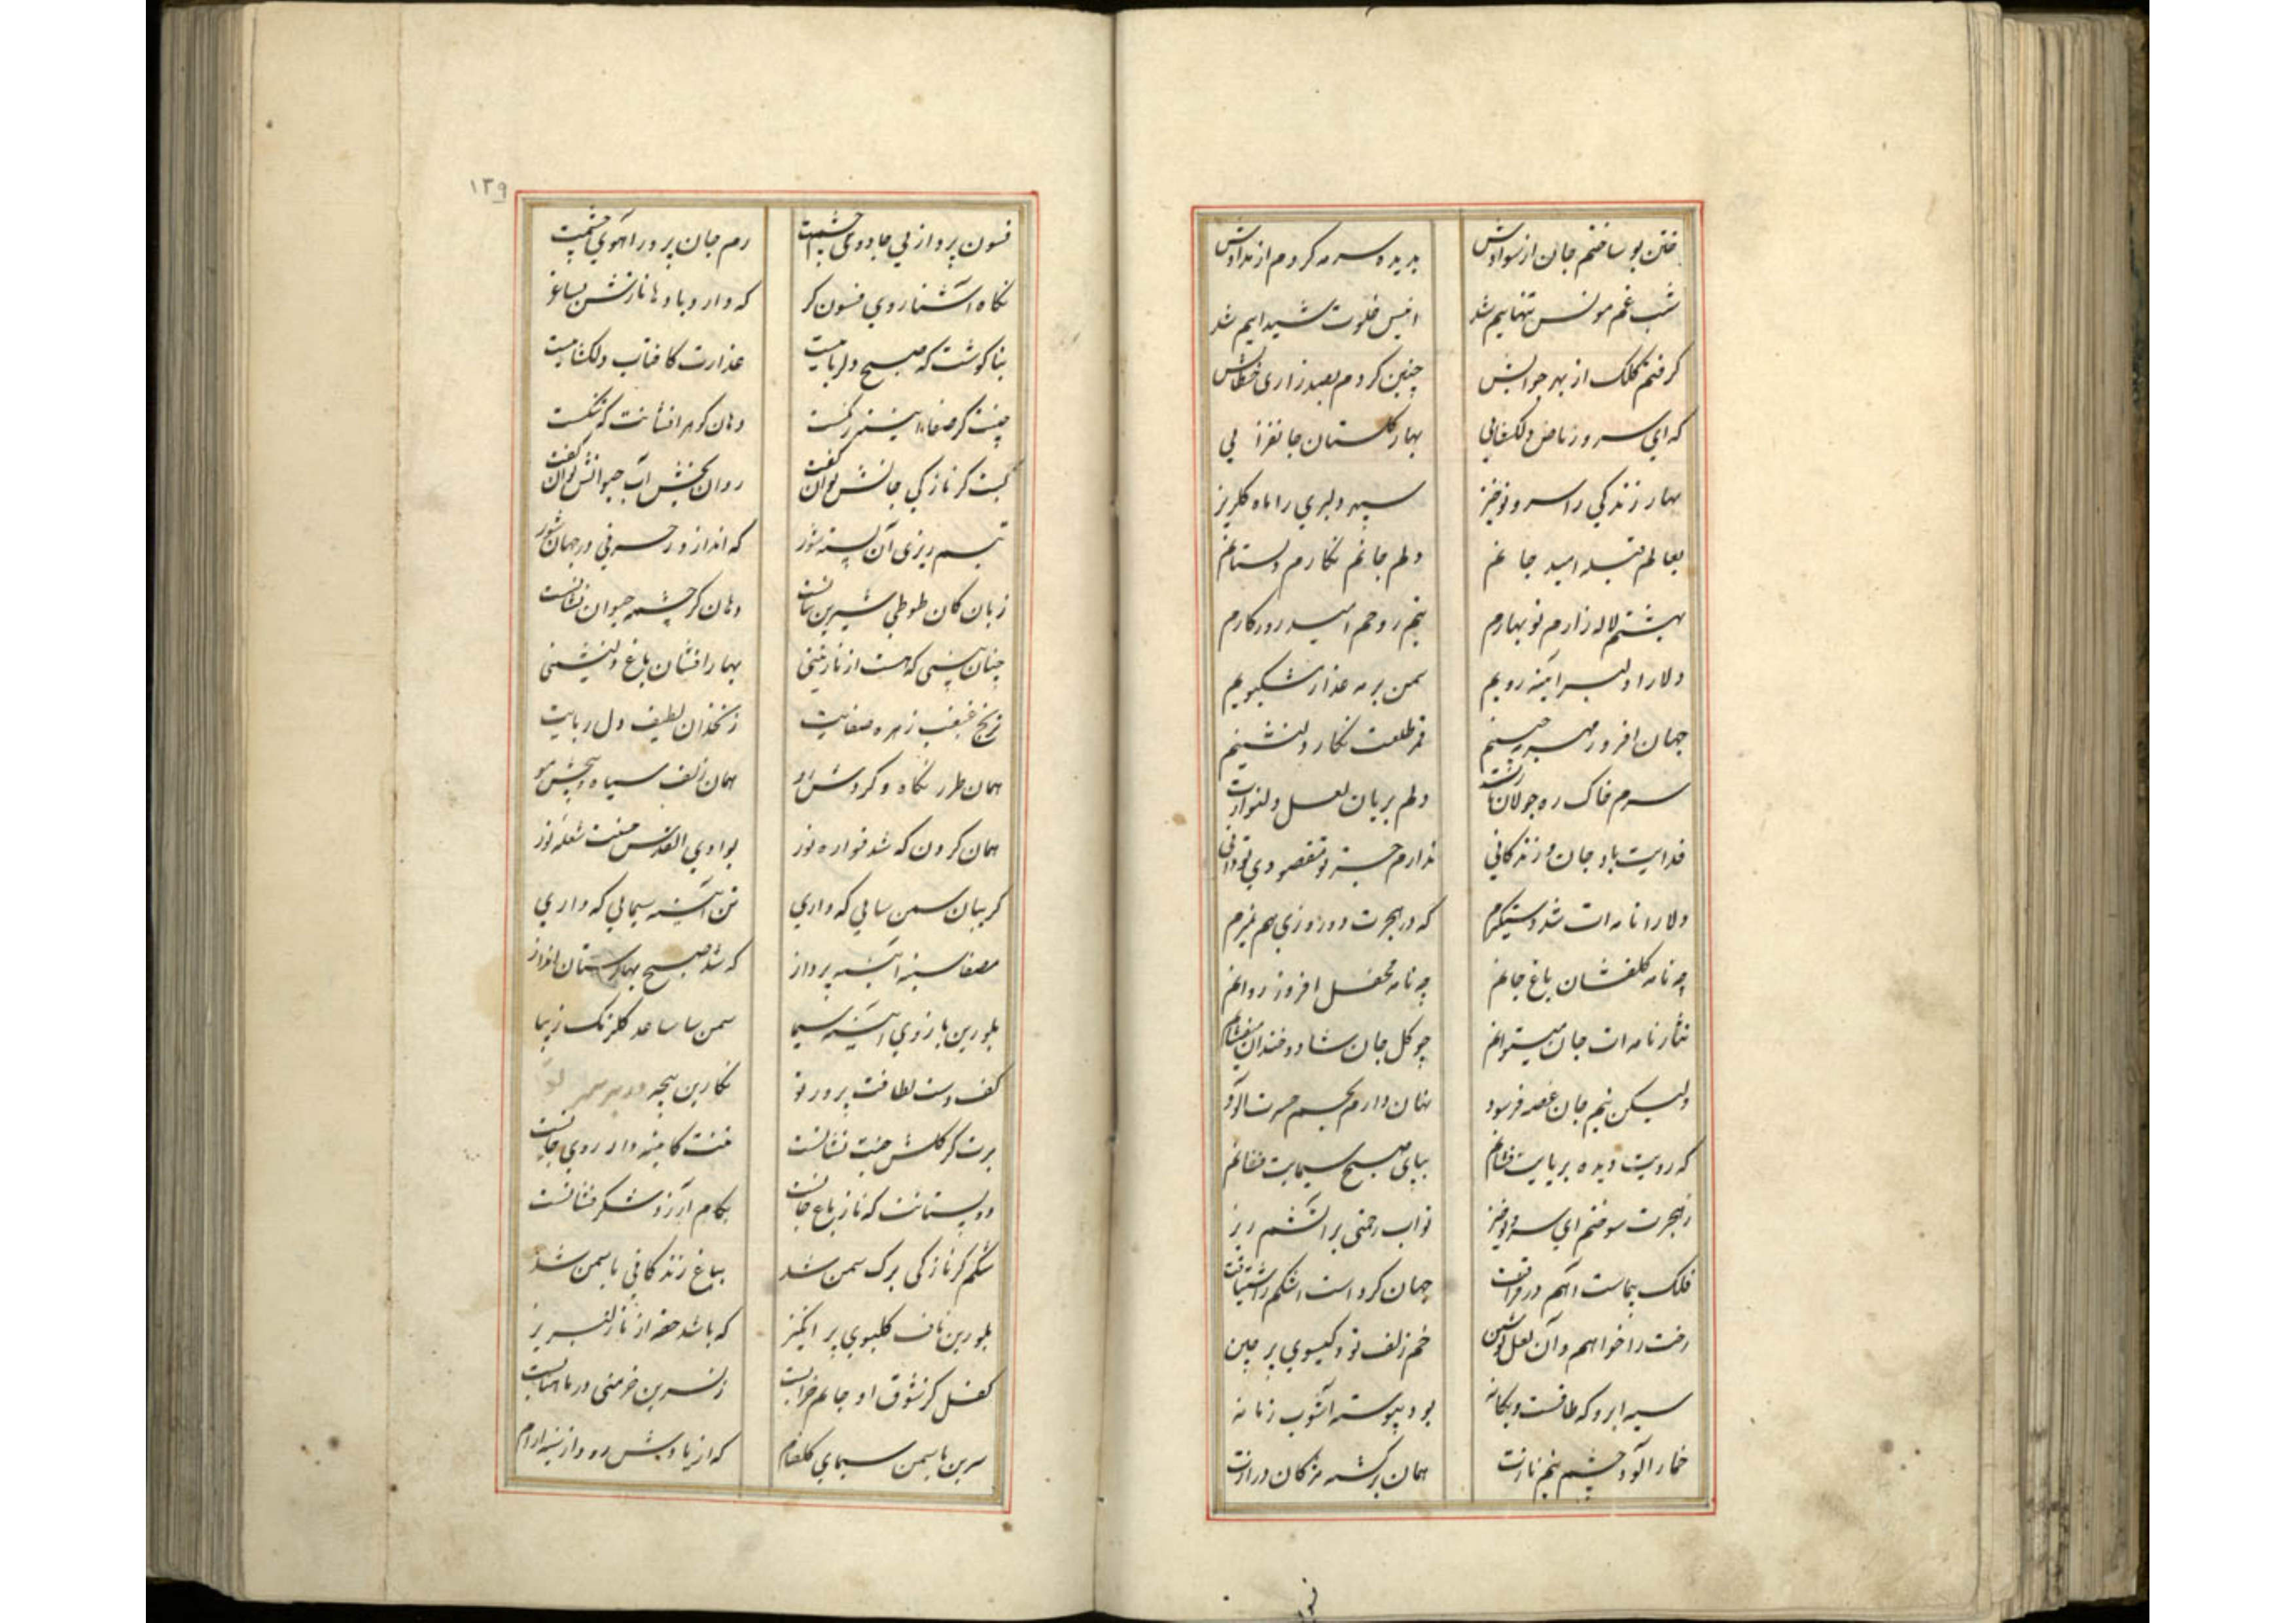 ختن بو ساختم جان از سوادش بدیده سرمه کردم از مدادش
شب غم مونس تنهاییم شد انیس خلوت شیداییم شد
گرفتم کلک از بهر جوابش چنین کردم بصد زاری خطابش
که ای سرو ریاض دلکشایی بهار گلستان جانفزایی
بهار زندگی را سرو نوخیز سپهر دلبری را ماه گلریز
بعالم قبله امید جانم دلم جانم نگارم دلستانم
بهشتم لاله زارم نوبهارم بتم روحم امید روزگارم
دلارا دلبر آینه رویم سمن بر مه عذار مشکبویم
جهان افروز مهر مه جبینم قمر طلعت نگار دلنشینم
سرم خاک ره جولان نازت دلم بریان لعل دلنوازت
فدایت باد جان و زندگانی ندارم جز تو مقصودی تو دانی
دلارا نامه ات شد دستگیرم که در هجرت دو روزی هم نمیرم
چه نامه گلفشان باغ جانم چه نامه محفل افروز روانم
نثار نامه ات جان میتوانم چو گل جان شاد و خندان میفشانم
ولیکن نیم جان غصه فرسود نهان دارم بجسم حسرت آلود
که رویت دیده بر پایت فشانم بپای صبح سیمایت فشانم
ز هجرت سوختم ای سرو نوخیز تو آب رحمتی بر آتشم ریز
فلک پیماست آهم در فراقت جهان گرد است اشکم ز اشتیاقت
رخت را خواهم و آن لعل نوشین خم زلف تو و گیسوی پر چین
سیه ابرو که طاقست و یگانه بود پیوسته آشوب زمانه
خمار آلود چشم نیم نازت همان برگشته مژگان درازت
۱۳۹
فسون پرداز پی جادوی چشمت رم جان پرور آهوی چشمت
نگاه آشنا روی فسونگر که دارد باده نازش بساغر
بناگوشت که صبح دلرباییست عذارت کافتاب دلکشاییست
دهان گوهر افشانت که تنگست
لبت کز نازکی جانش توان گفت روان بخش آب حیوانش توان گفت
تبسم ریزی آن پسته شور که اندازد ز حرفی در جهان شور
زبان کان طوطی شیرین زبانست دهان کز چشمه حیوان نشانست
بهار افشان باغ دلنشینی
ترنج غبغب زهره صفایت زنخدان لطیف دل ربایت
همان طرز نگاه و گردش او همان زلف سیاه و پیچش مو
همان گردن که شد فواره نور بوادی القدس حسنت شعله نور
گریبان سمن سایی که داری تن آینه سیمایی که داری
مصفا سینه آینه پرداز که شد صبح بهارستان اعزاز
بلورین بازوی آینه سیما سمن سا ساعد گلرنگ زیبا
کف دست لطافت پرور تو نگارین پنجه
برت کز گلشن جنت نشانست تنت کاینه دار روی جانست
دو پستانت که ناز باغ جانست بکام آرزو شکر فشانست
شکم کز نازکی برگ سمن شد بباغ زندگانی یاسمن شد
بلورین ناف گلبوی پر انگیز که باشد حقه از ناز لبریز
کفل کز شوق او جانم خرابست ز نسرین خرمنی در ماهتابست
سرین یاسمن سیمای گلفام که از یادش رود از سینه آرام